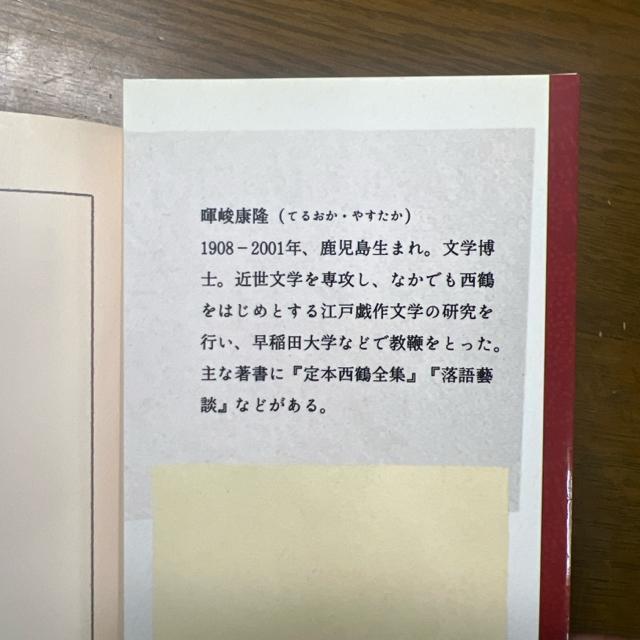 暉峻康隆（てるおか・やすたか）
1908－2001年、鹿児島生まれ。文学博
士。近世文学を専攻し、なかでも西鶴
をはじめとする江戸戯作文学の研究を
行い、早稲田大学などで教鞭をとった。
主な著書に『定本西鶴全集』『落語藝
談』などがある。